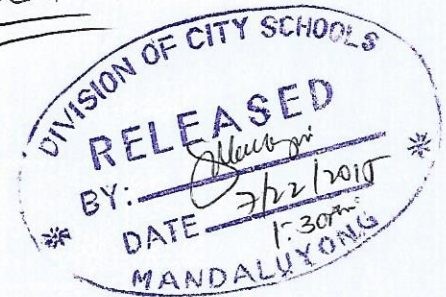 DIVISION OF CITY SCHOOLS
RELEASED
BY:
DATE 7/22/2015
1:30pm
MANDALUYONG